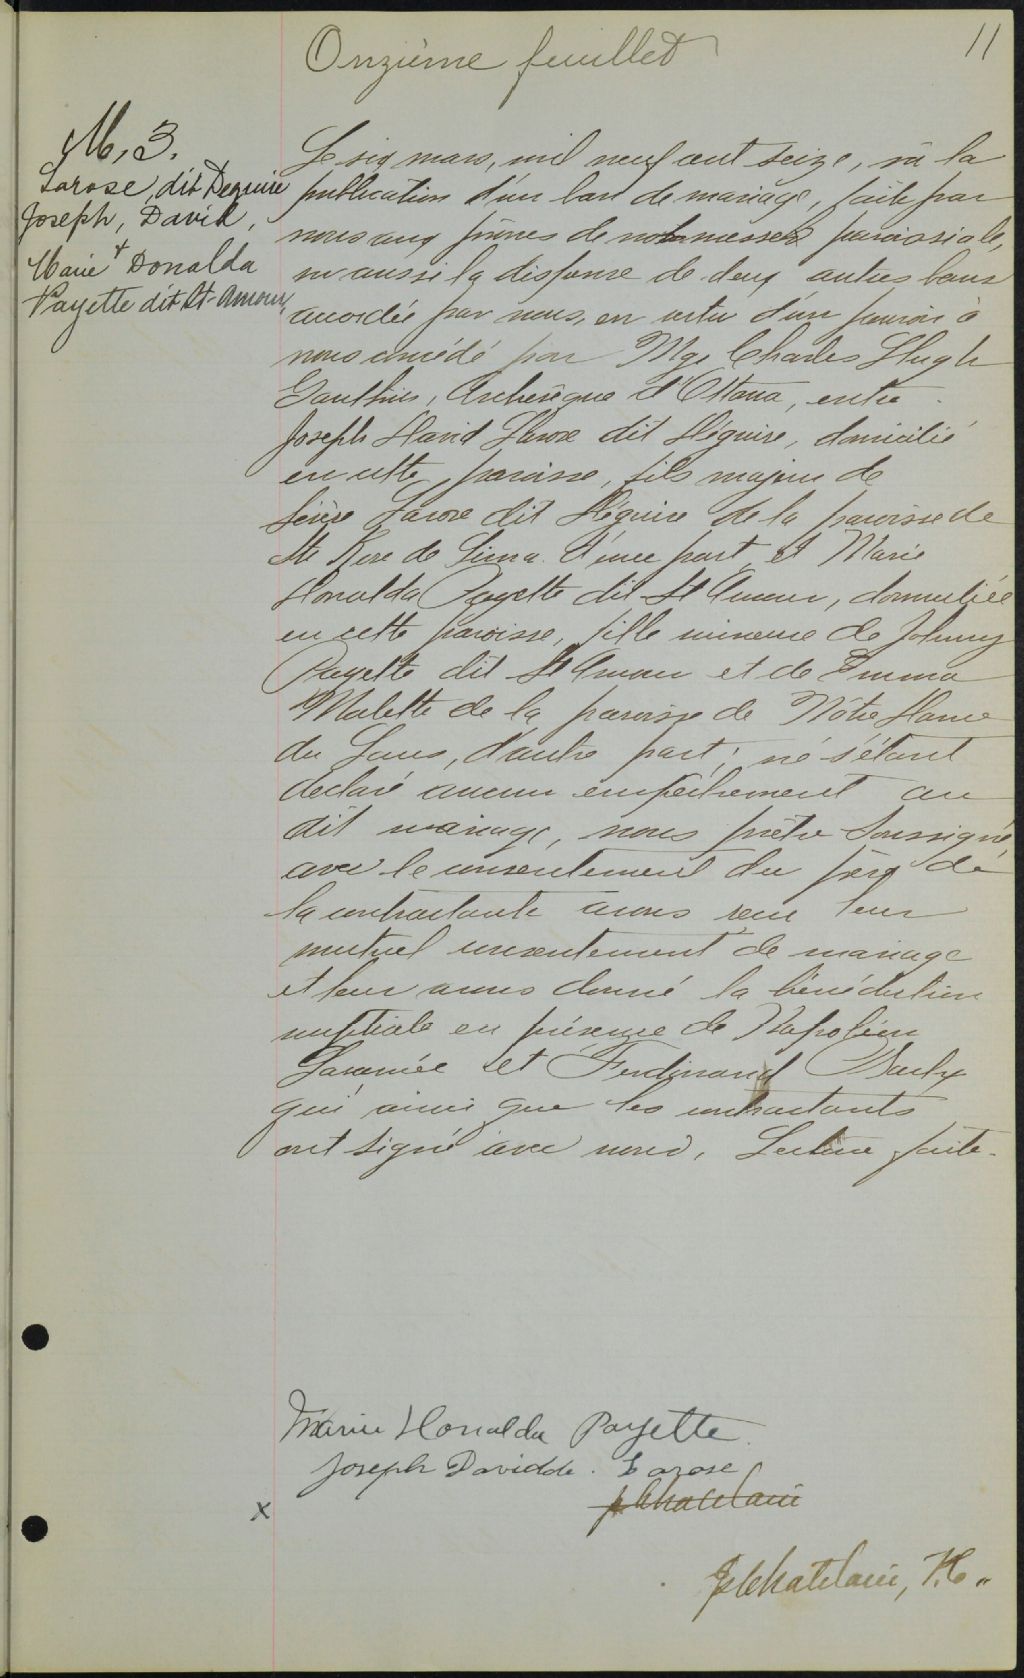 Onzième feuillet
11
M, 3.
Larose, dit Deguire
Joseph, David,
+
Marie Donalda
Payette dit St-Amour,
Le six mars, mil neuf cent seize, vu la
publication d'un ban de mariage, faite par
nous aux prônes de notre messe paroissiale,
vu aussi la dispense de deux autres bans
accordée par nous, en vertu d'un pouvoir à
nous concédé par Mgr Charles Hugh
Gauthier, Archevêque d'Ottawa, entre
Joseph David Larose dit Déguire, domicilié
en cette paroisse, fils majeur de
Larose dit Déguire de la paroisse de
Ste Rose de Lima d'une part, et Marie
Donalda Payette dit St Amour, domiciliée
en cette paroisse, fille mineure de Johnny
Payette dit St Amour et de Emma
Malette de la paroisse de Nôtre Dame
du Laus, d'autre part; ne s'étant
déclaré aucun empêchement au
dit mariage, nous prêtre soussigné,
avec le consentement du père de
la contractante avons reçu leur
mutuel consentement de mariage
et leur avons donné la bénédiction
nuptiale en présence de Napoléon
et Ferdinand
qui ainsi que les contractants
ont signé avec nous, Lecture faite.
Marie Donalda Payette
Joseph Davidde. Larose
x
Chatelain
Chatelain,